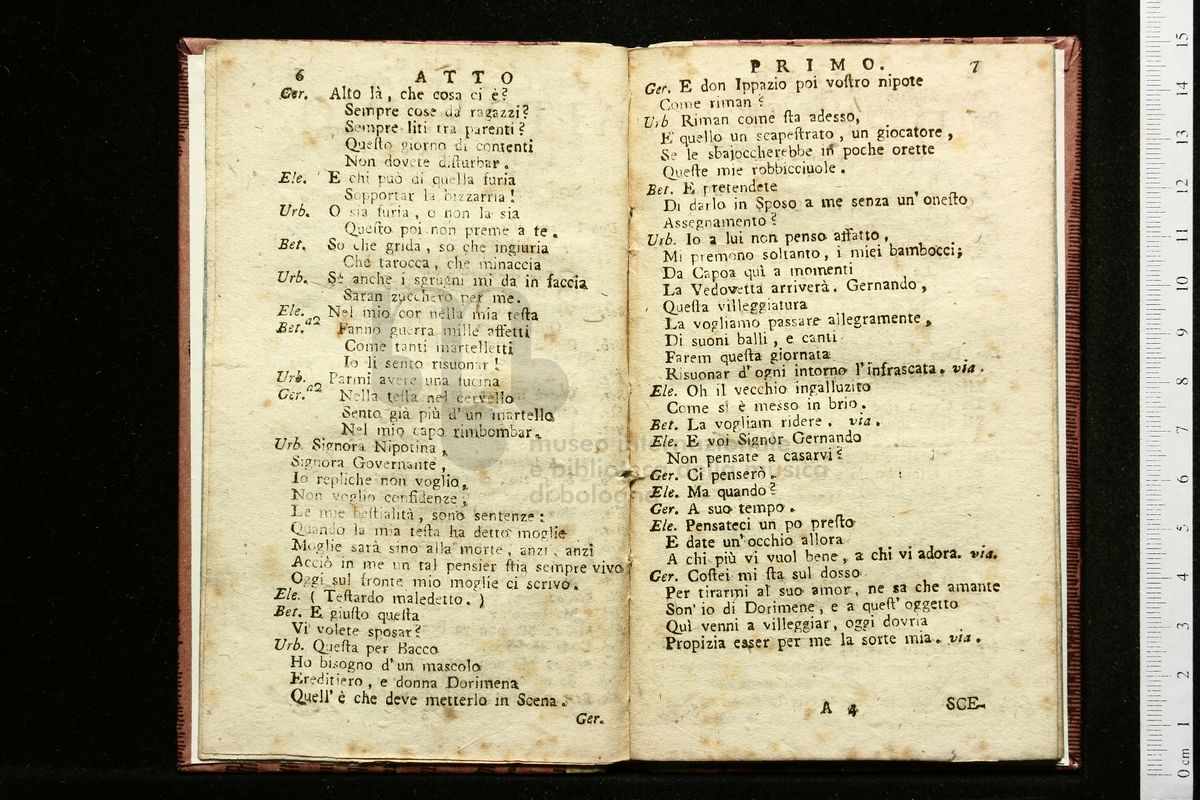 6 ATTO
Ger. Alto là, che cosa ci è?
Sempre cose da ragazzi?
Sempre liti tra parenti?
Questo giorno di contenti
Non dovete disturbar.
Ele. E chi può di quella furia
Sopportar la bizzarria!
Urb. O sia furia, o non la sia
Questo poi non preme a te.
Bet. So che grida, so che ingiuria
Che tarocca, che minaccia
Urb. Se anche i sgrugni mi da in faccia
Saran zucchero per me.
Ele. Nel mio cor nella mia testa
Bet. a2 Fanno guerra mille affetti
Come tanti martelletti
Io li sento risuonar!
Urb. Parmi avere una fucina
Ger. a2 Nella testa nel cervello
Sento già più d'un martello
Nel mio capo rimbombar.
Urb. Signora Nipotina,
Signora Governante,
Io repliche non voglio,
Non voglio confidenze,
Le mie bestialità, sono sentenze:
Quando la mia testa ha detto moglie
Moglie sarà sino alla morte, anzi, anzi
Acciò in me un tal pensier stia sempre vivo
Oggi sul fronte mio moglie ci scrivo.
Ele. (Testardo maledetto.)
Bet. E giusto questa
Vi volete sposar?
Urb. Questa per Bacco
Ho bisogno d'un mascolo
Ereditiero, e donna Dorimena
Quell'è che deve metterlo in Scena.
Ger.
PRIMO. 7
Ger. E don Ippazio poi vostro nipote
Come riman?
Urb Riman come sta adesso,
E quello un scapestrato, un giocatore,
Se le sbajoccherebbe in poche orette
Queste mie robbicciuole.
Bet. E pretendete
Di darlo in Sposo a me senza un'onesto
Assegnamento?
Urb. Io a lui non penso affatto,
Mi premono soltanto, i miei bambocci;
Da Capoa quì a momenti
La Vedovetta arriverà. Gernando,
Questa villeggiatura
La vogliamo passare allegramente,
Di suoni balli, e canti
Farem questa giornata
Risuonar d'ogni intorno l'infrascata. via.
Ele. Oh il vecchio ingalluzito
Come si è messo in brio.
Bet. La vogliam ridere. via.
Ele. E voi Signor Gernando
Non pensate a casarvi?
Ger. Ci penserò.
Ele. Ma quando?
Ger. A suo tempo.
Ele. Pensateci un po presto
E date un'occhio allora
A chi più vi vuol bene, a chi vi adora. via.
Ger. Costei mi sta sul dosso
Per tirarmi al suo amor, ne sa che amante
Son'io di Dorimene, e a quest'oggetto
Quì venni a villeggiar, oggi dovria
Propizia esser per me la sorte mia. via.
A 4 SCE-
museo internazionale
e biblioteca della musica
di bologna
0 cm 1 2 3 4 5 6 7 8 9 10 11 12 13 14 15